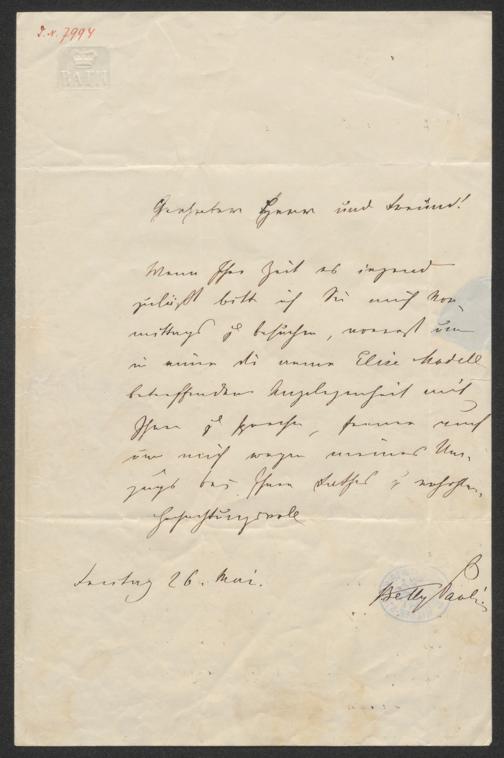 J. N. 7994
BATH
Geehrter Herr und Freund!
Wenn Ihre Zeit es irgend
zuläßt bitte ich Sie mich Vor-
mittags zu besuchen, vorerst um
in einer die arme Elise Modell
betreffenden Angelegenheit mit
Ihnen zu sprechen, ferner auch
um mich wegen meines Um-
zugs bei Ihnen Rathes zu erholen.
Hochachtungsvoll
Freitag 26. Mai.
Betty Paoli